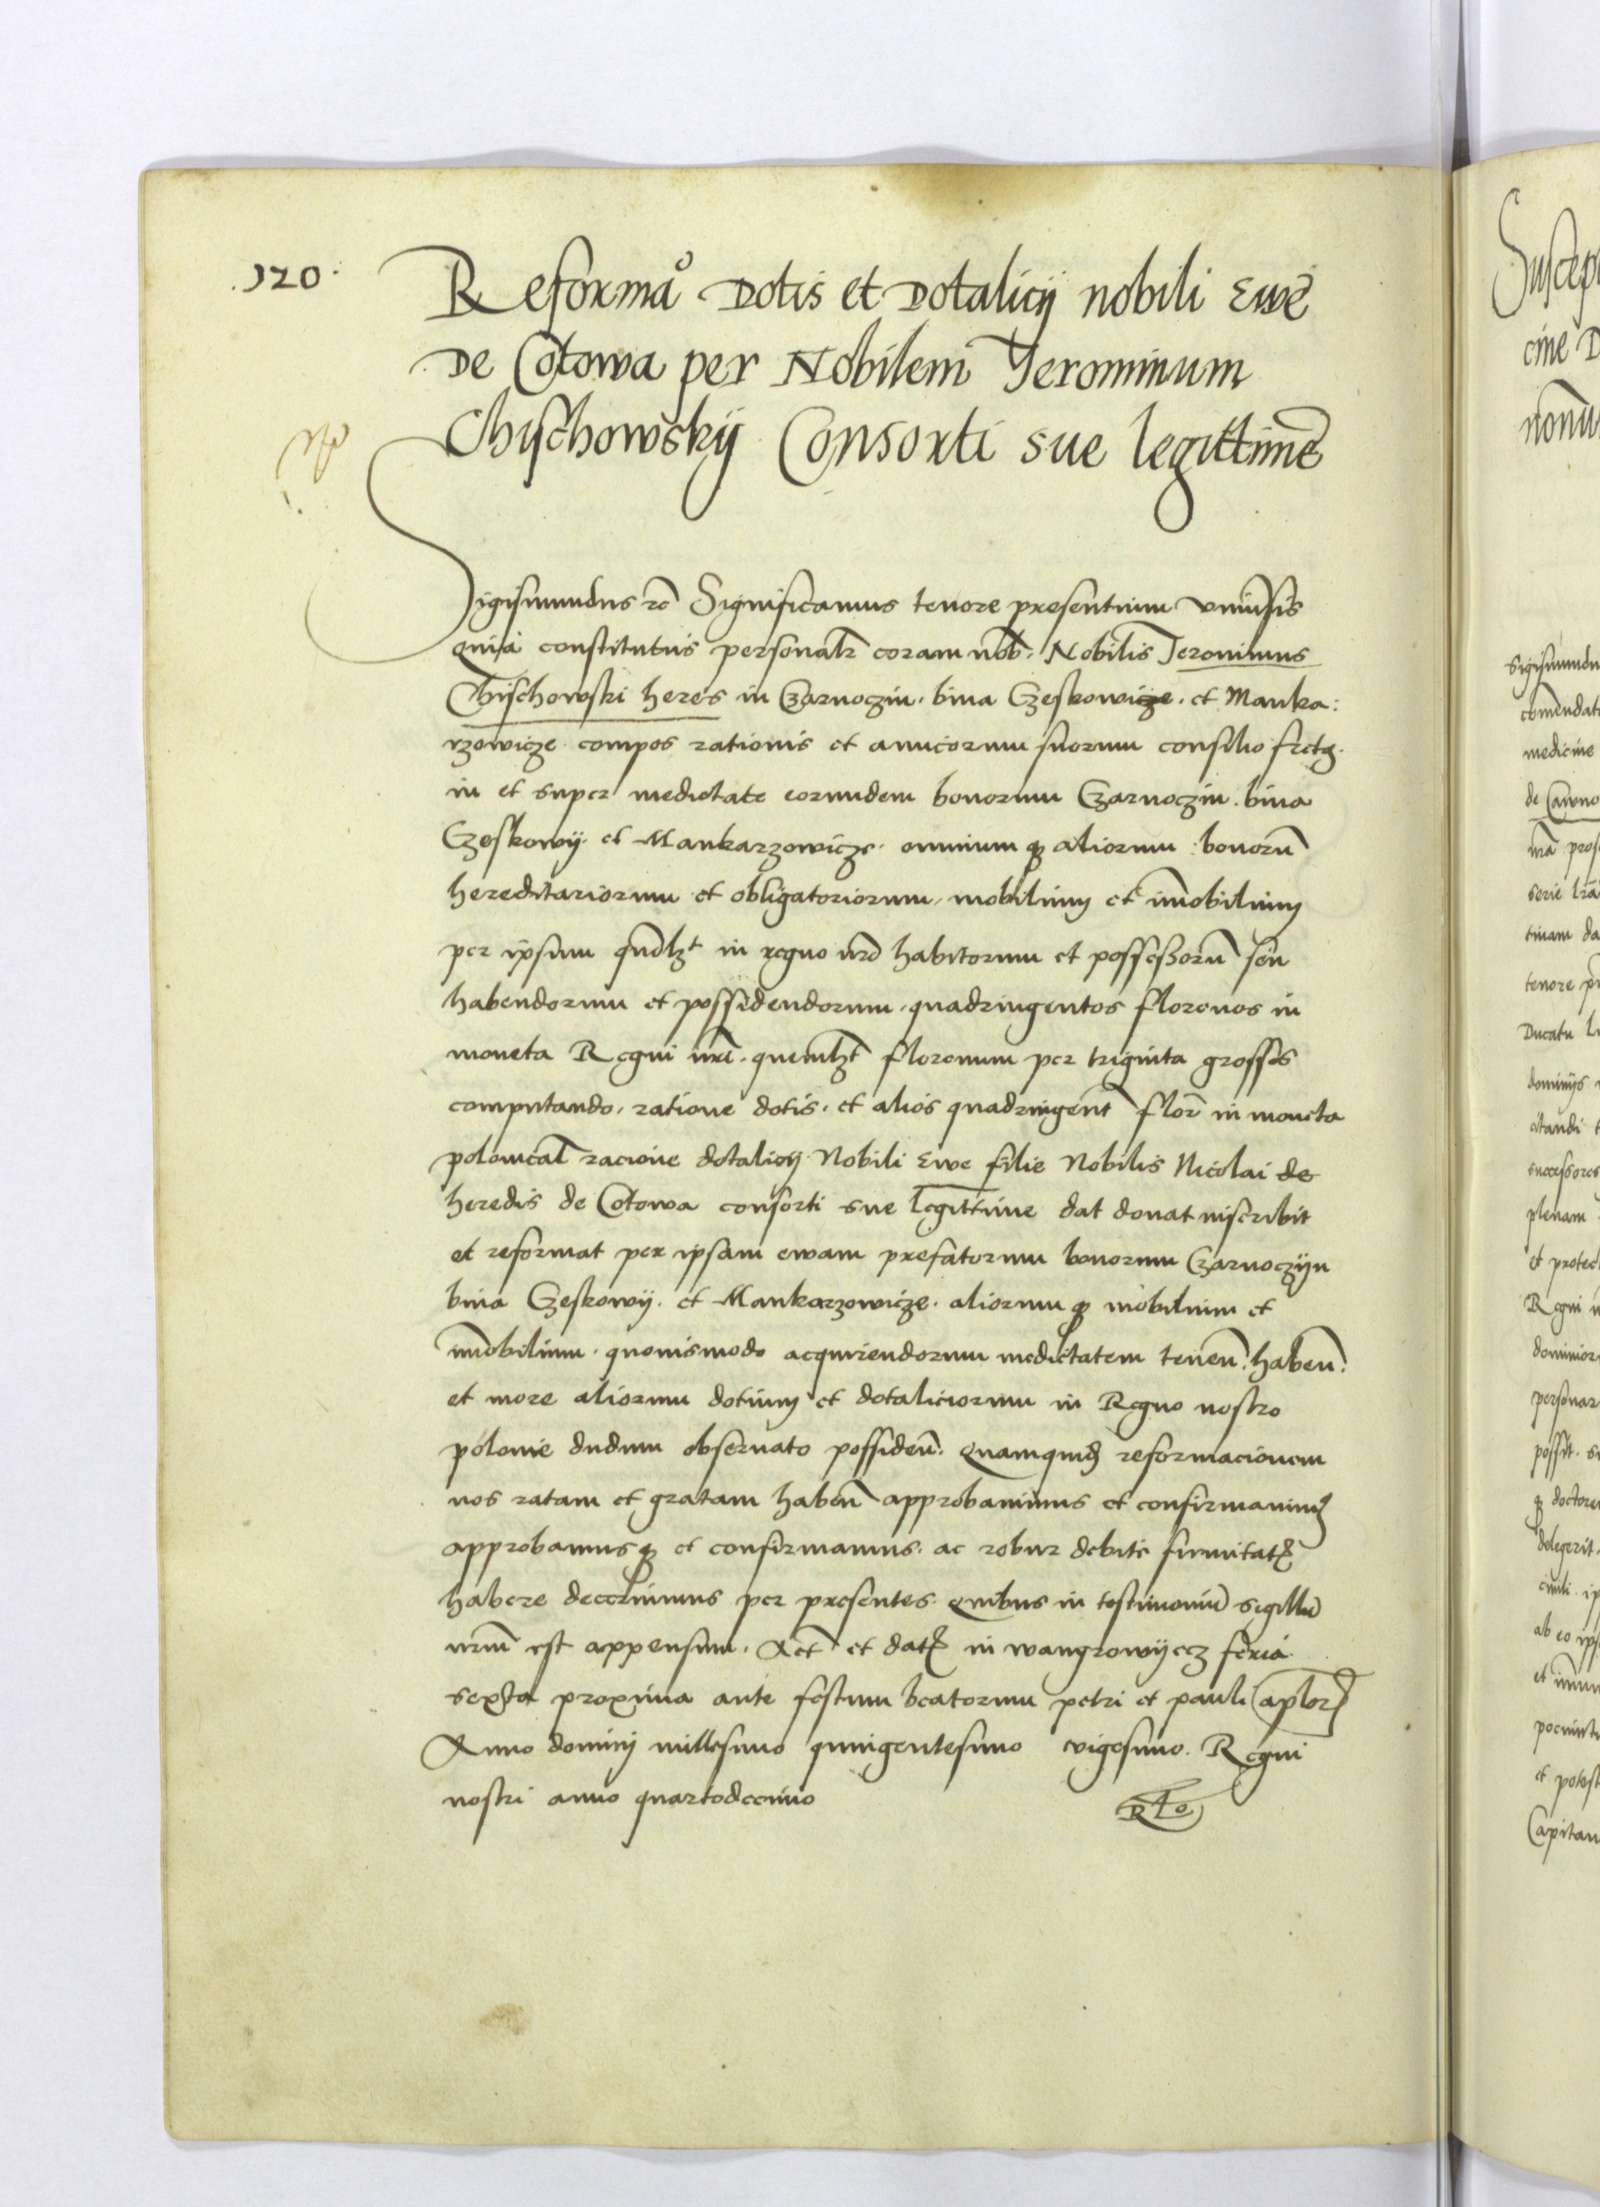 120
Reformaº Dotis et Dotalicij nobili Ewe
De Cotowa per Nobilem Jerominum
Chyschowskij Consorti sue legittime
Sigismundus rc Significamus tenore presentium vniūsis
quia constitutus personalr coram nob. Nobilis Jeronimus
Chischowski heres in Czarnoczin. bina Czeskowicze. et Manka:
rzowicze compos rationis et amicorum suorum consilio fretq.
in et super medietate eorundem bonorum Czarnoczin. bina
Czeskowij. et Mankarzowicze. omnium q aliorum bonorū
hereditariorum et obligatoriorum, mobilium et imobilium
per ipsum qndlzt in regno nro habitorum et possessorū seu
habendorum et possidendorum, quadringentos florenos in
moneta Regni nri. quemlzt florenum per triginta grossos
computando, ratione dotis, et alios quadringent flor in moneta
polonical racione dotalicij Nobili Ewe filie Nobilis Nicolai de
heredis de Cotowa consorti sue legittime dat donat inscribit
et reformat per ipsam ewam prefatorum bonorum Czarnoczijn
bina Czeskowij. et Mankarzowicze. aliorum q mobilium et
imobilium. quouismodo acquirendorum medietatem tenen. haben.
et more aliorum dotium et dotaliciorum in Regno nostro
polonie dudum obseruato possiden. Quamquid reformacionem
nos ratam et gratam haben approbauimus et confirmauim9
approbamusq et confirmamus. ac robur debite firmitat
habere decernimus per presentes. Quibus in testimoniū sigillū
nrm est appensum. Act et dat in wangrowijecz feria
sexta proxima ante festum beatorum petri et pauli aplor
Anno dominj millesimo quingentesimo vigesimo. Regni
nostri anno quartodecimo
Suscep
cine D
nonu
Sigismundu
comendat
medicine
de Cawno
nrā prof
serie lrā
tinam da
tenore pn
Ducatu l
dominijs
citandi t
successores
plenam
et protec
Regni n
dominior
personar
possit. s
q doctore
delegerit.
ciuili ip
ab eo ips
et potest
Capitan